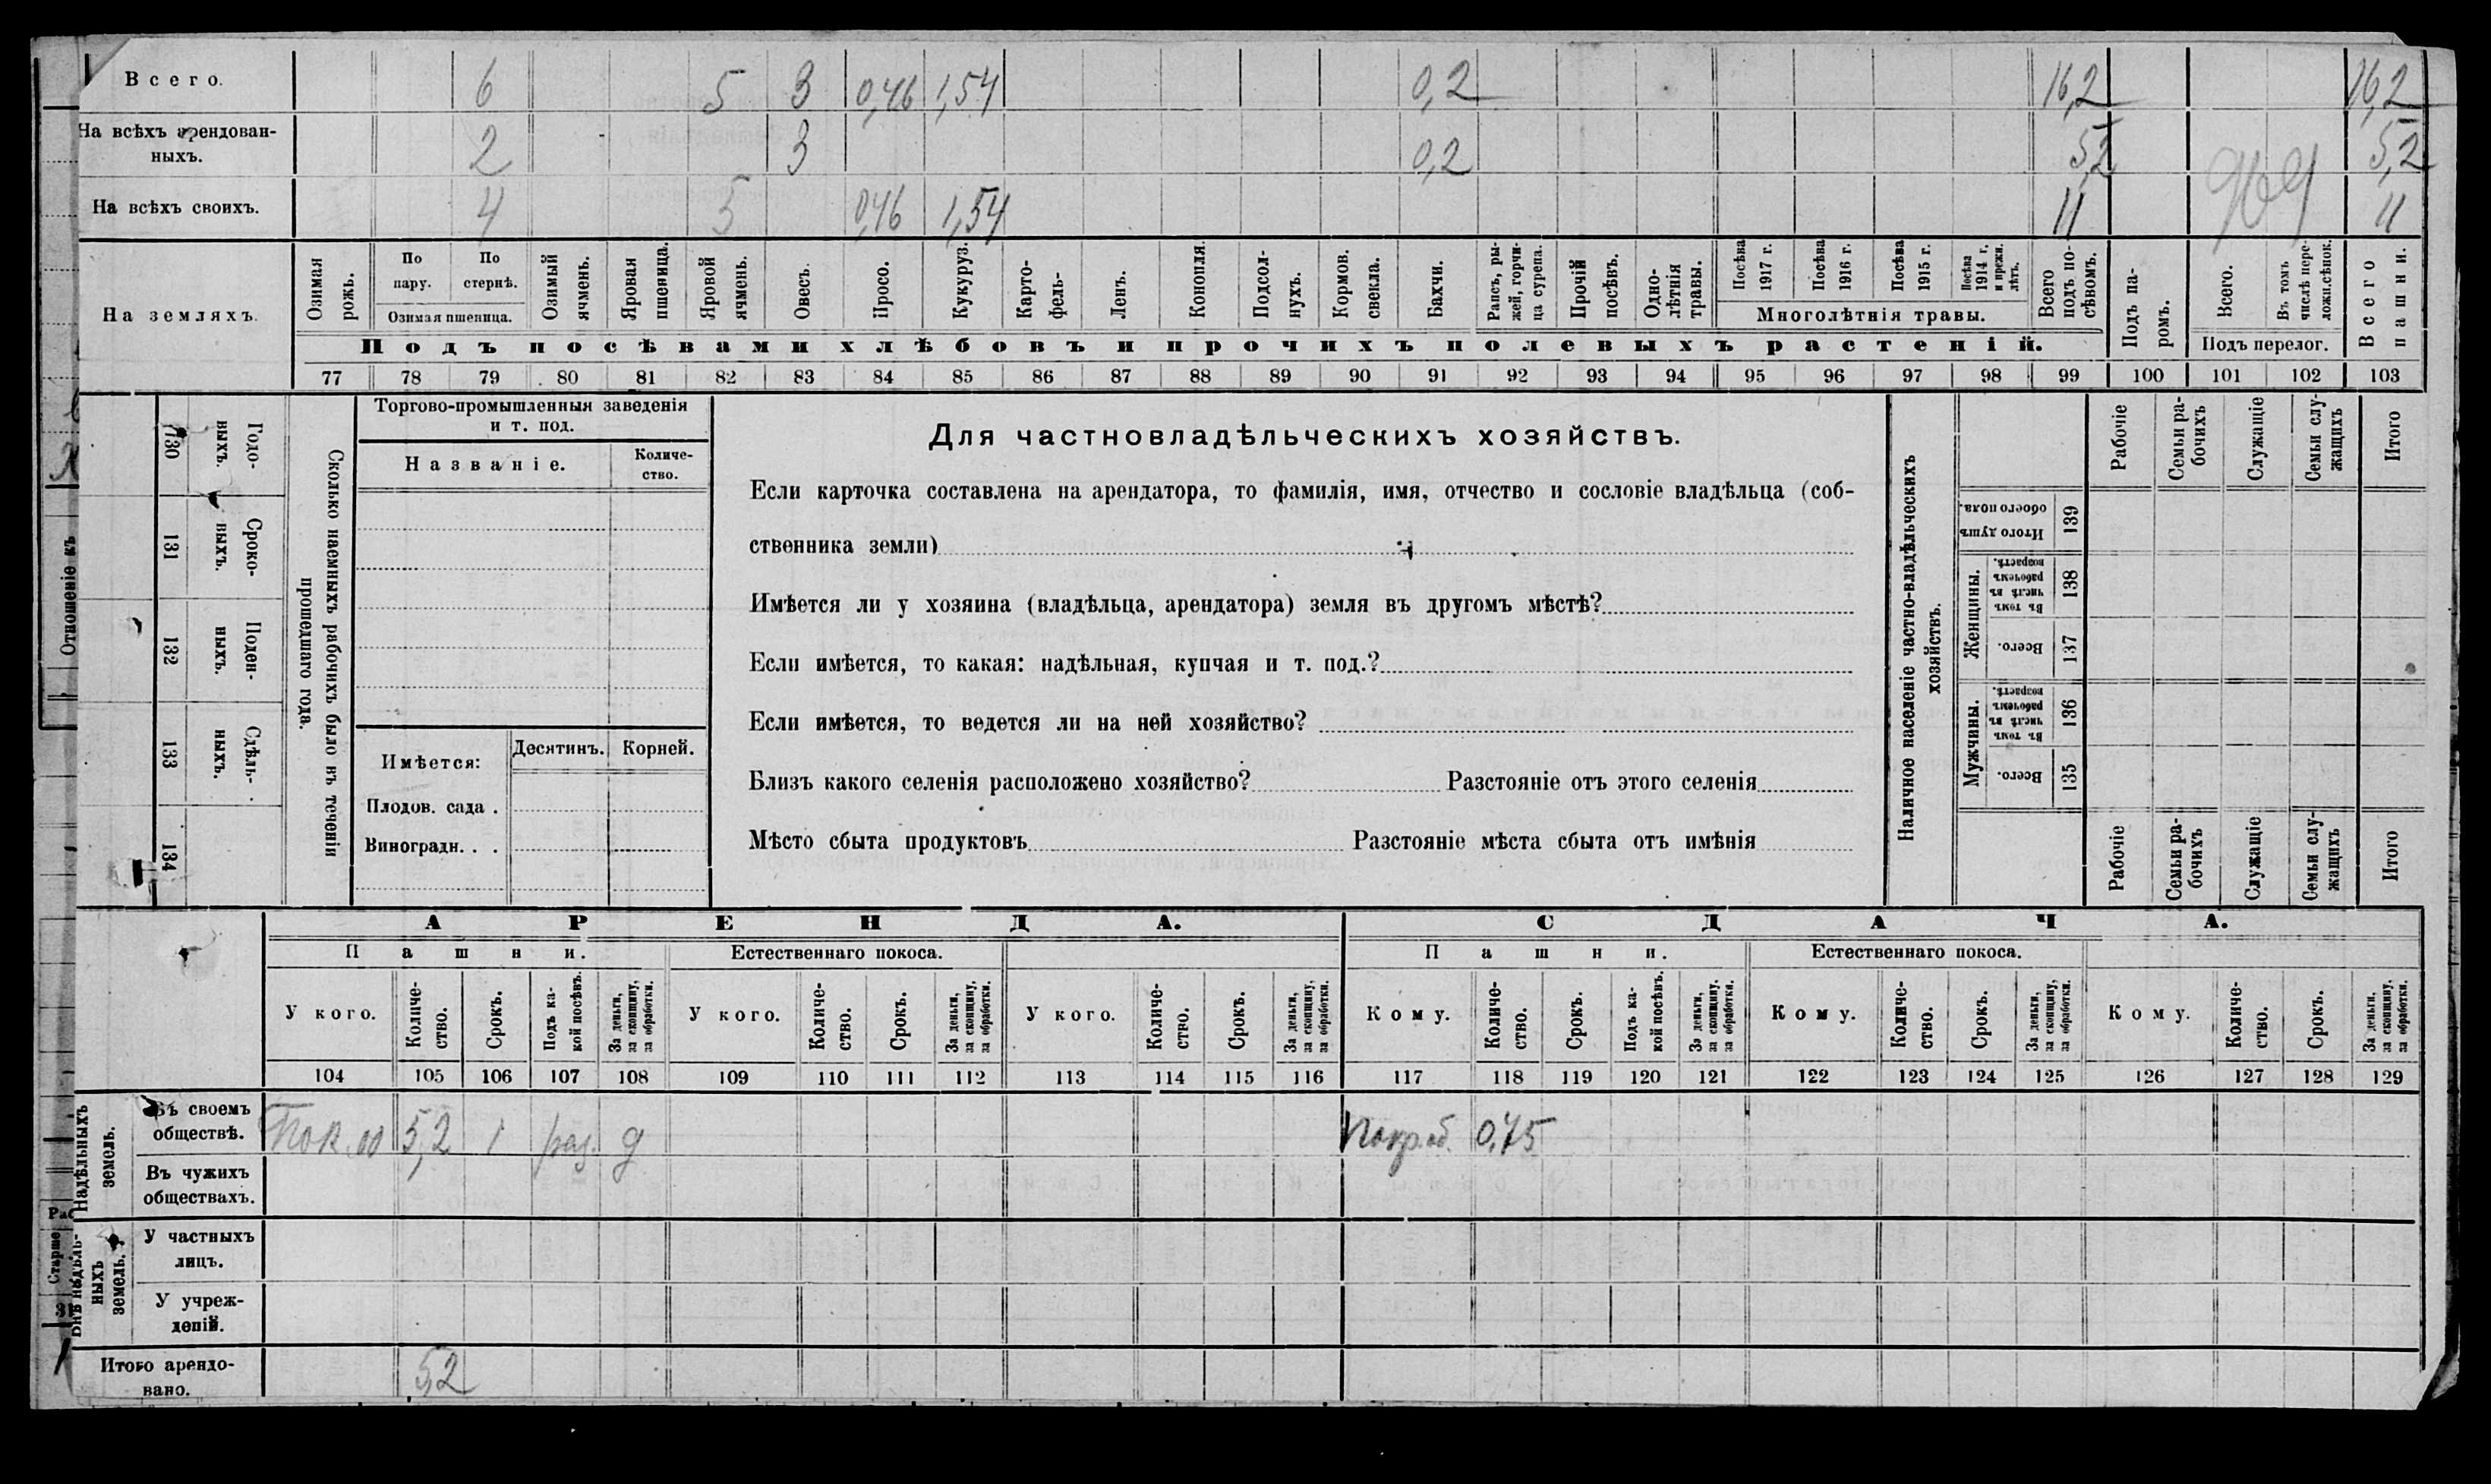 Всего. 6 5 3 0,46 1,54 0,2 16,2 16,2
На всѣхъ арендован-
ныхъ. 2 3 0,2 5,2 5,2
На всѣхъ своихъ. 4 5 0,46 1,54 11 11
На земляхъ.
Озимая рожь.
По пару.
По стернѣ.
Озимая пшеница.
Озимый ячмень.
Яровая пшеница.
Яровой ячмень.
Овесъ.
Просо.
Кукуруз.
Карто-
фель-
Ленъ.
Конопля.
Подсол-
нухъ.
Кормов.
свекла.
Бахчи.
Рапсъ, ры-
жей, горчи-
ца сурепа.
Прочій
посѣвъ.
Одно-
лѣтнія
травы.
Посѣва
1917 г.
Посѣва
1916 г.
Посѣва
1915 г.
Посѣва
1914 г.
и прежн.
лѣтъ.
Многолѣтнія травы.
Всего
подъ по-
сѣвомъ.
Подъ па-
ромъ.
Всего.
Въ томъ
числѣ пере-
лож.сѣнок.
Подъ перелог.
Всего
пашни.
Подъ посѣвами хлѣбовъ и прочихъ полевыхъ растеній.
77 78 79 80 81 82 83 84 85 86 87 88 89 90 91 92 93 94 95 96 97 98 99 100 101 102 103
Отношеніе къ
130 Годо-
ныхъ.
131 Сроко-
ныхъ.
132 Поден-
ныхъ.
133 Сдѣль-
ныхъ.
134
Сколько наемныхъ рабочихъ было въ теченіи
прошедшаго года.
Торгово-промышленныя заведенія
и т. под.
Названіе.
Количе-
ство.
Имѣется: Десятинъ. Корней.
Плодов. сада .
Виноградн. . .
Для частновладѣльческихъ хозяйствъ.
Если карточка составлена на арендатора, то фамилія, имя, отчество и сословіе владѣльца (соб-
ственника земли)
Имѣется ли у хозяина (владѣльца, арендатора) земля въ другомъ мѣстѣ?
Если имѣется, то какая: надѣльная, купчая и т. под.?
Если имѣется, то ведется ли на ней хозяйство?
Близъ какого селенія расположено хозяйство? Разстояніе отъ этого селенія
Мѣсто сбыта продуктовъ Разстояніе мѣста сбыта отъ имѣнія
Наличное населеніе частно-владѣльческихъ
хозяйствъ.
Рабочіе
Семьи ра-
бочихъ
Служащіе
Семьи слу-
жащихъ
Итого
Итого душъ
обоего пола. 139
Женщины.
Въ томъ
числѣ въ
рабочемъ
возрастѣ. 138
Всего. 137
Мужчины.
Въ томъ
числѣ въ
рабочемъ
возрастѣ. 136
Всего. 135
Рабочіе
Семьи ра-
бочихъ
Служащіе
Семьи слу-
жащихъ
Итого
АРЕНДА. СДАЧА.
Пашни. Естественнаго покоса. Пашни. Естественнаго покоса.
У кого.
Количе-
ство.
Срокъ.
Подъ ка-
кой посѣвъ.
За деньги,
за скопщину,
за обработки.
У кого.
Количе-
ство.
Срокъ.
За деньги,
за скопщину,
за обработки.
У кого.
Количе-
ство.
Срокъ.
За деньги,
за скопщину,
за обработки.
Кому.
Количе-
ство.
Срокъ.
Подъ ка-
кой посѣвъ.
За деньги,
за скопщину,
за обработки.
Кому.
Количе-
ство.
Срокъ.
За деньги,
за скопщину,
за обработки.
Кому.
Количе-
ство.
Срокъ.
За деньги,
за скопщину,
за обработки.
104 105 106 107 108 109 110 111 112 113 114 115 116 117 118 119 120 121 122 123 124 125 126 127 128 129
Надѣльныхъ
земель.
Въ своемъ
обществѣ. 5,2 1 раз. д 0,75
Въ чужихъ
обществахъ.
Внѣ надѣль-
ныхъ
земель.
У частныхъ
лицъ.
У учреж-
деній.
Итого арендо-
вано. 5,2
Старше